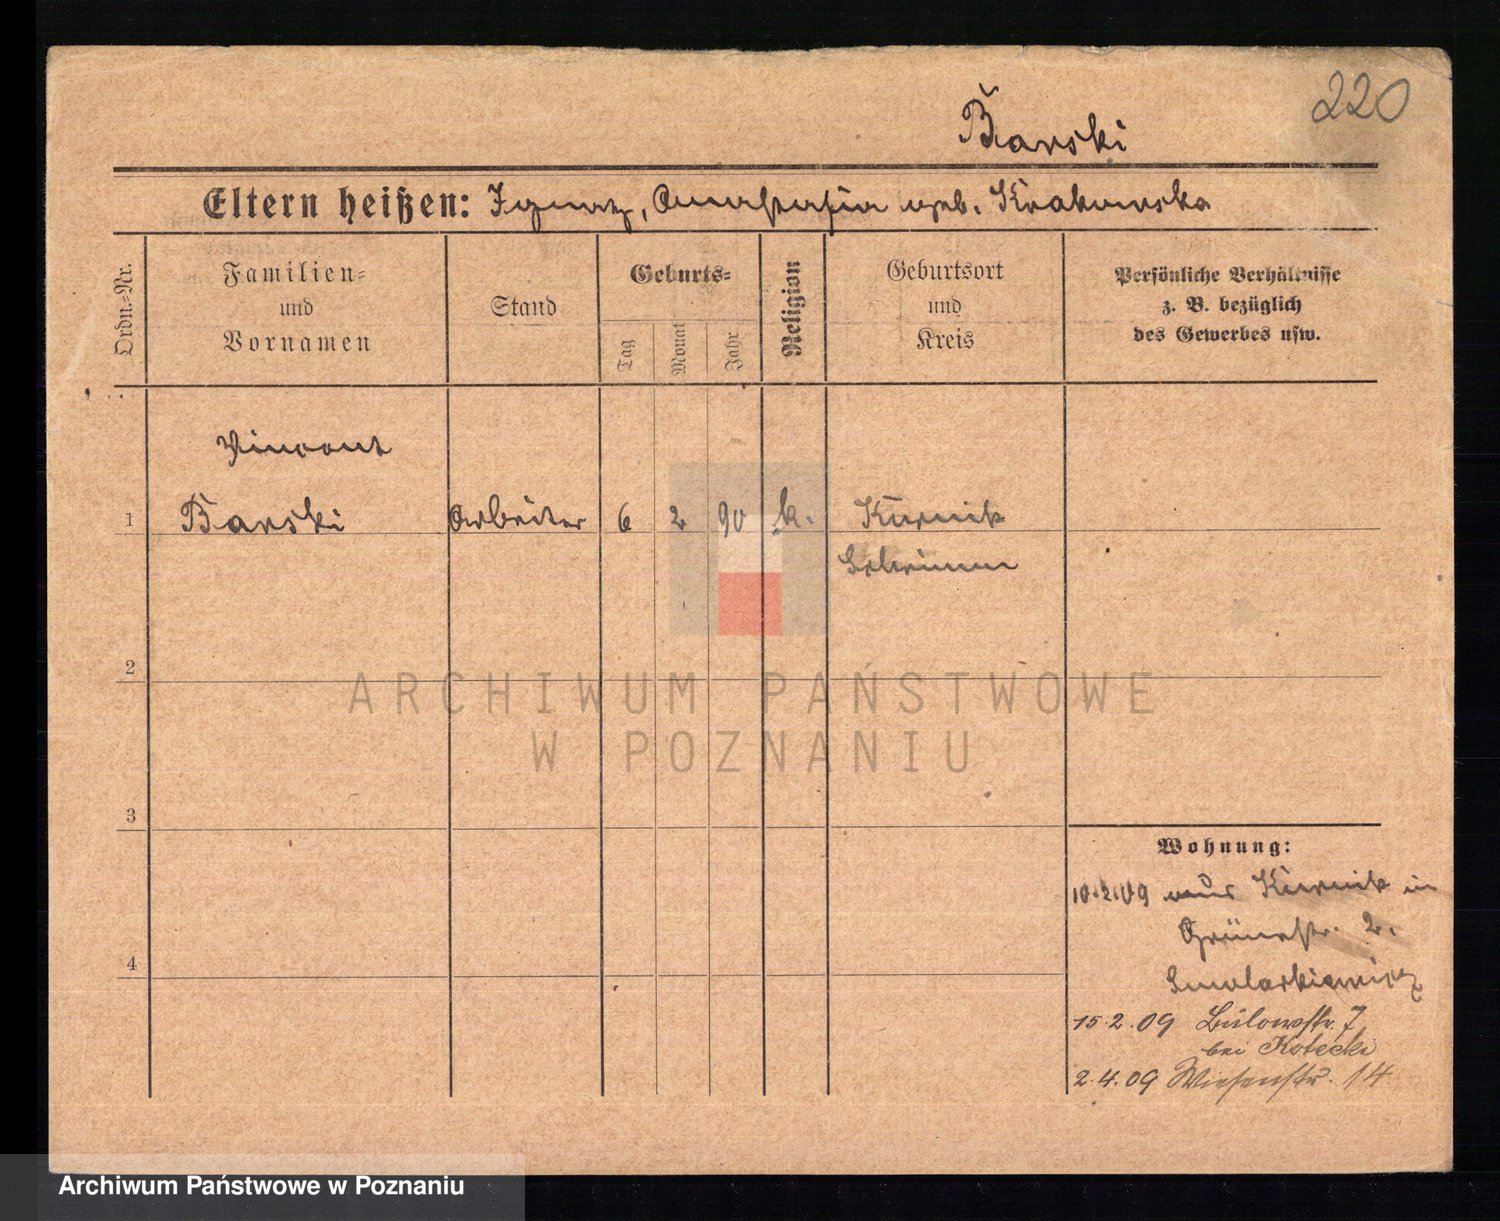 220
Barski
Eltern heißen: Ignatz, Anastasia geb. Krakowska
Ordn.=Nr.
Familien=
und
Vornamen
Stand
Geburts=
Tag
Monat
Jahr
Religion
Geburtsort
und
Kreis
Persönliche Verhältnisse
z. B. bezüglich
des Gewerbes usw.
Vincent
1 Barski Arbeiter 6 2 90 k. Kurnik
Schrimm
2
ARCHIWUM PAŃSTWOWE
W POZNANIU
3
Wohnung:
10.2.09 aus Kurnik in
Grünestr. 2.
Smolarkiewicz
4
15.2.09 Bülowstr. 7
bei Kotecki
2.4.09 Wiesenstr. 14
Archiwum Państwowe w Poznaniu